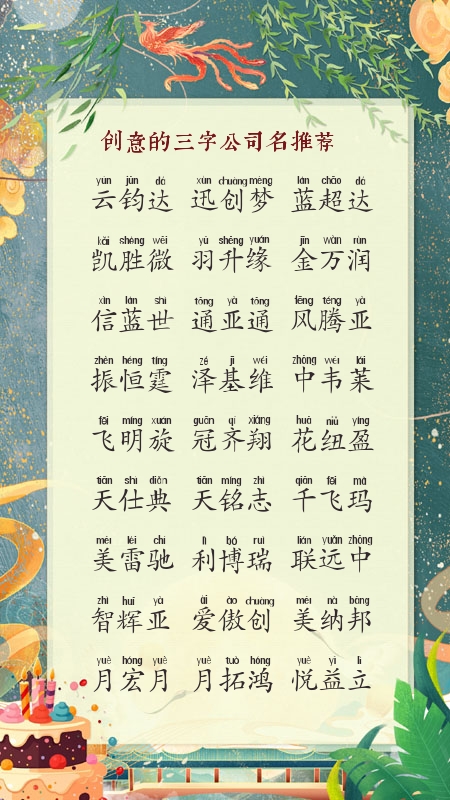 创意的三字公司名推荐
yún jūn dá xùn chuàng mèng lán chāo dá
云钧达 迅创梦 蓝超达
kǎi shèng wēi yǔ shēng yuán jīn wàn rùn
凯胜微 羽升缘 金万润
xìn lán shì tōng yà tōng fēng téng yà
信蓝世 通亚通 风腾亚
zhèn héng tíng zé jī wéi zhōng wéi lái
振恒霆 泽基维 中韦莱
fēi míng xuán guān qí xiáng huā niǔ yíng
飞明旋 冠齐翔 花纽盈
tiān shì diǎn tiān míng zhì qiān fēi mǎ
天仕典 天铭志 千飞玛
měi léi chí lì bó ruì lián yuǎn zhōng
美雷驰 利博瑞 联远中
zhì huī yà ài ào chuàng měi nà bāng
智辉亚 爱傲创 美纳邦
yuè hóng yuè yuè tuò hóng yuè yì lì
月宏月 月拓鸿 悦益立